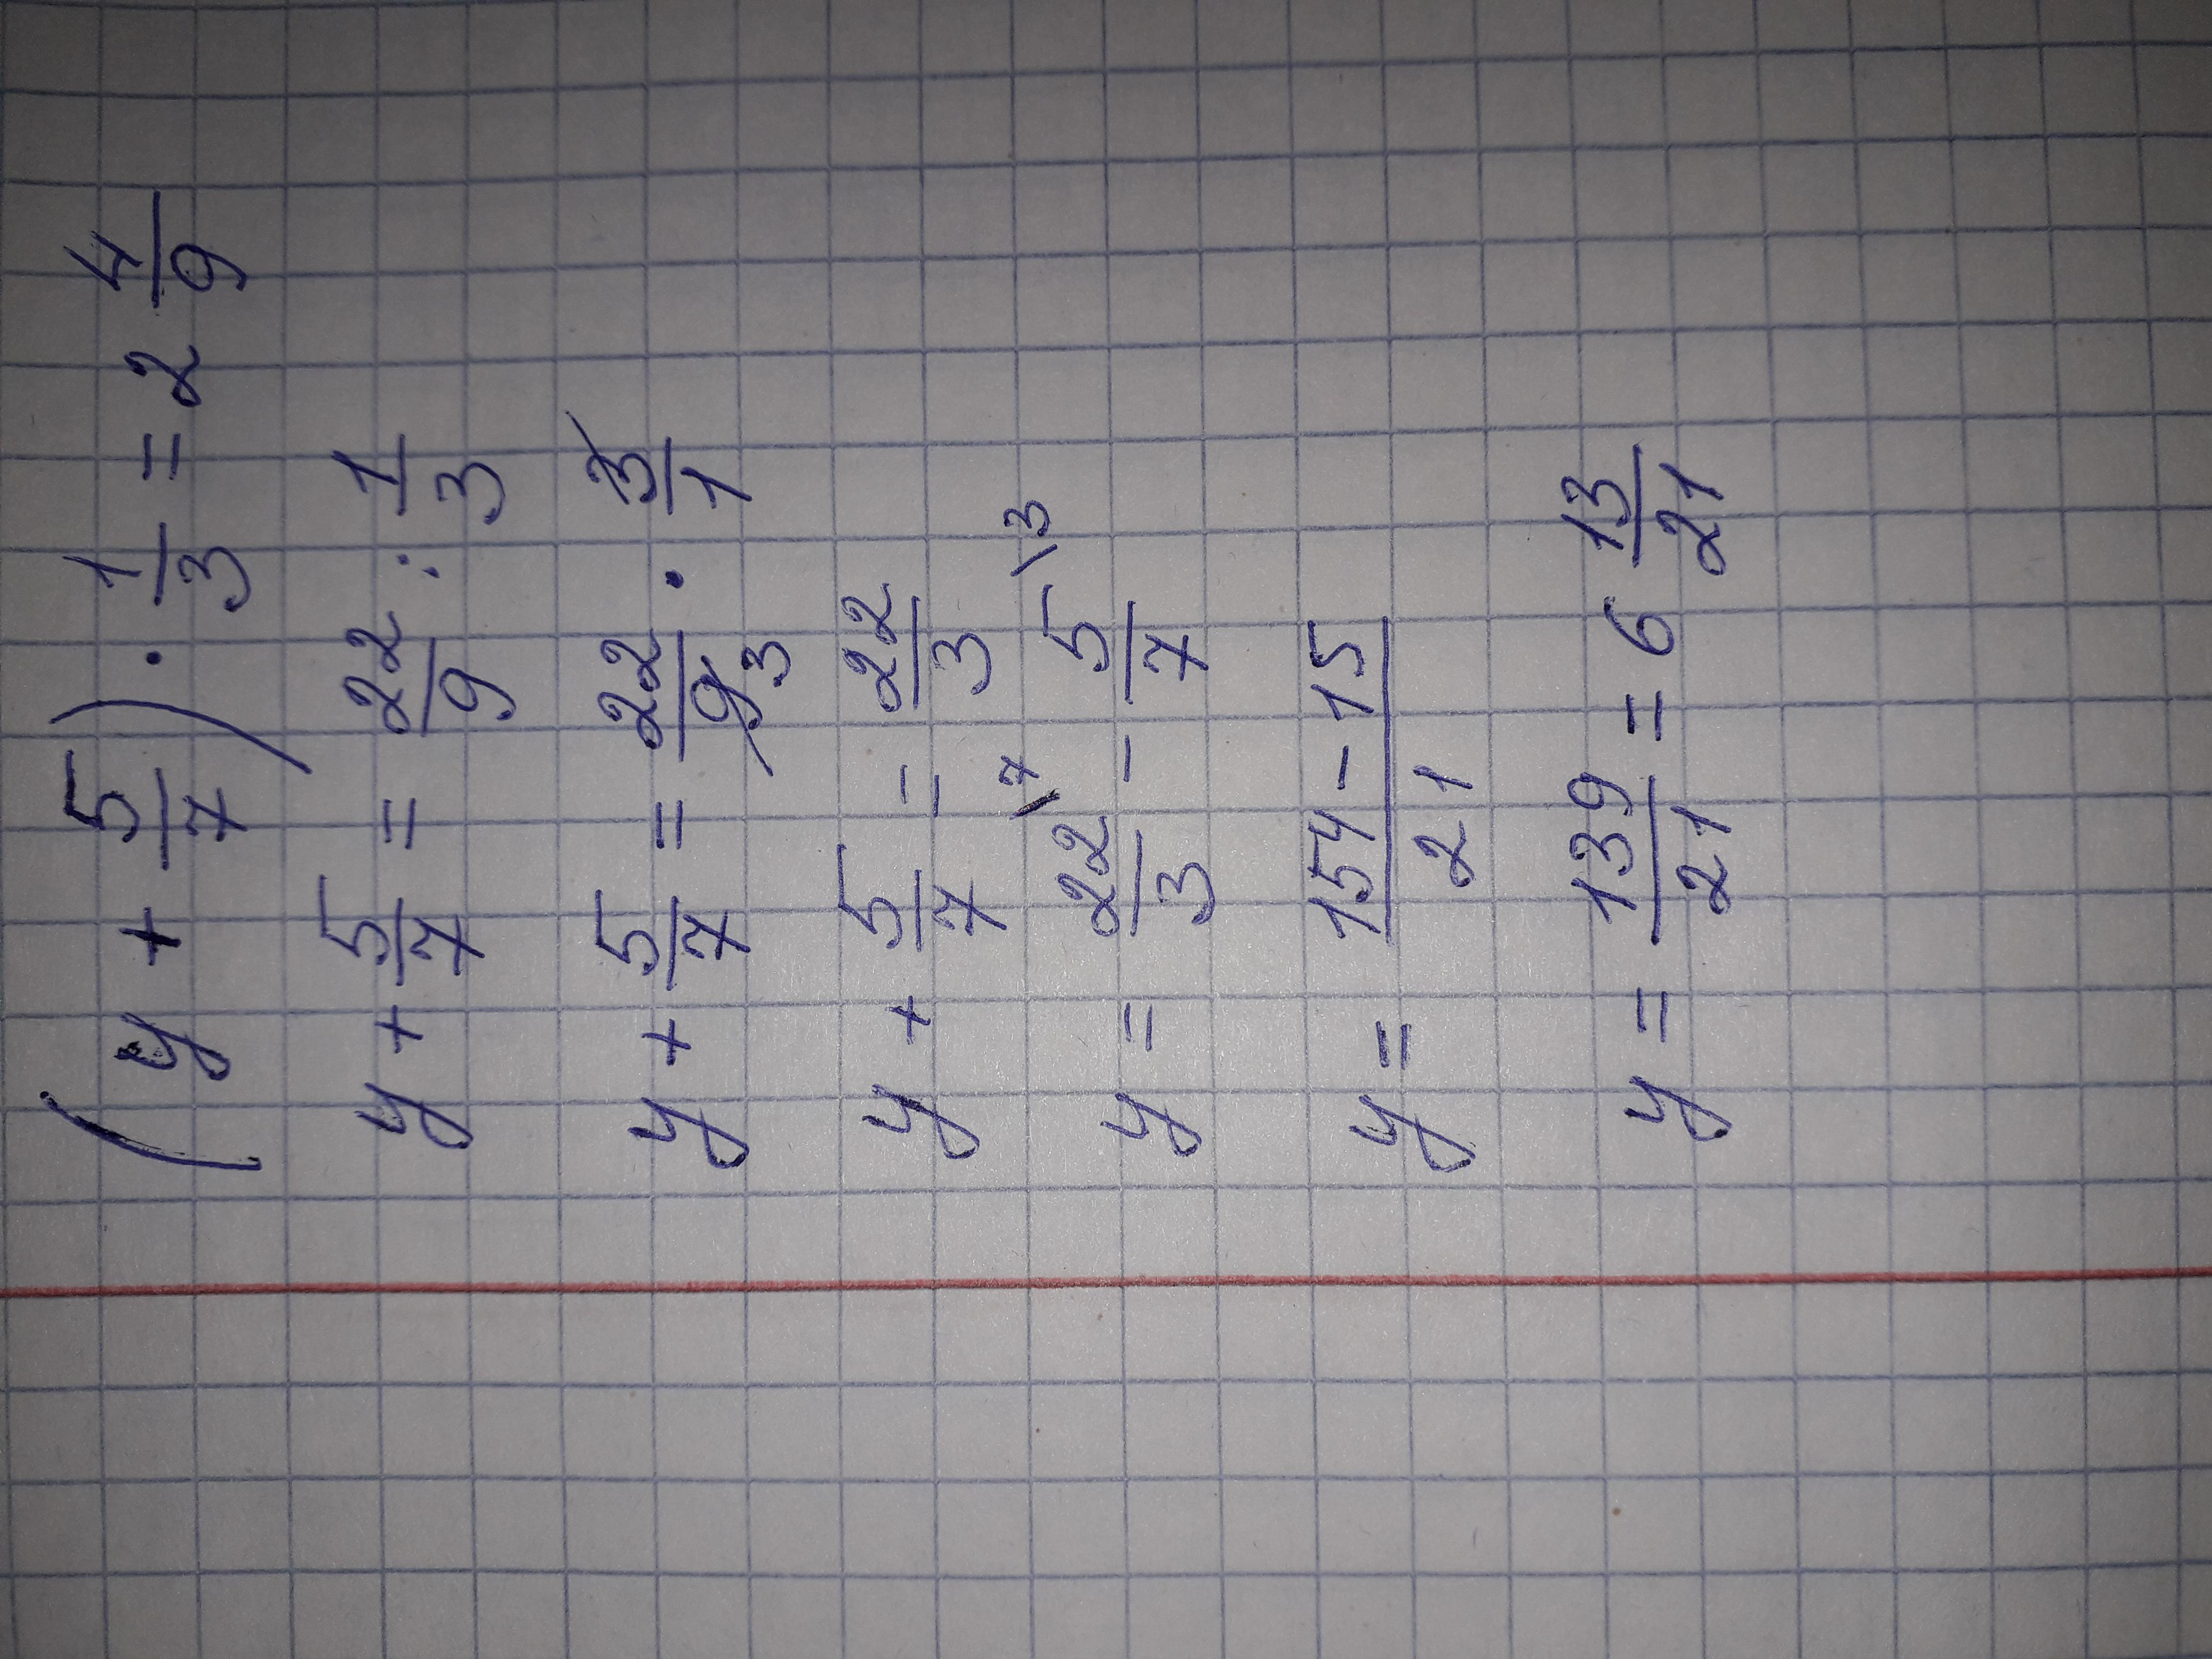 (y + 5/7) · 1/3 = 2 4/9
y + 5/7 = 22/9 : 1/3
y + 5/7 = 22/9 3 · 3/1
y + 5/7 = 22/3
y = 22/3 \7 - 5/7 \3
y = 154 - 15/21
y = 139/21 = 6 13/21